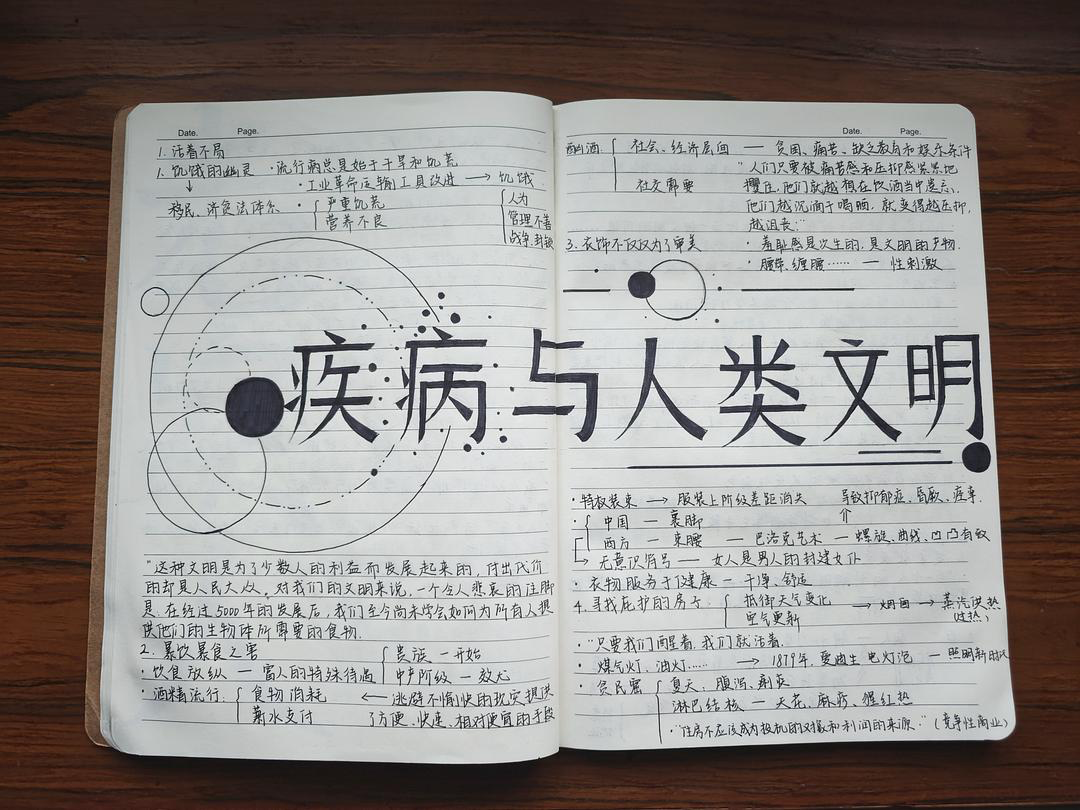 Date. Page.
1. 活着不易
1. 饥饿的幽灵 ·流行病总是始于干旱和饥荒
·工业革命运输工具改进 → 饥饿
移民、济贫法体系 严重饥荒 人为
营养不良 管理不善
战争、封锁
疾病与人类文明
"这种文明是为了少数人的利益而发展起来的,付出代价
的却是人民大众。对我们的文明来说,一个令人悲哀的注脚
是,在经过5000年的发展后,我们至今尚未学会如何为所有人提
供他们的生物体所需要的食物.
2. 暴饮暴食之害 贵族 — 开始
·饮食放纵 — 富人的特殊待遇 中产阶级 — 放大
·酒精流行: 食物消耗 ← 逃避不愉快的现实提供
薪水支付 了方便、快速、相对便宜的手段
Date. Page.
酗酒 社会、经济层面 — 贫困、痛苦、缺乏教育和娱乐条件
"人们只要被痛苦感和压抑感紧紧地
社交需要 攫住,他们就越想在饮酒当中逃离,
他们越沉湎于喝酒,就变得越压抑,
越沮丧."
3. 衣饰不仅仅为了审美 ·羞耻感是次生的,是文明的产物.
·腰带、缠腰…… — 性刺激
·特权装束 → 服装上阶级差距消失 导致抑郁症、昏厥、痉挛.
· 中国 — 裹脚
西方 — 束腰 — 巴洛克艺术 — 螺旋、曲线、凹凸有致
→ 无意识符号 — 女人是男人的封建女仆
·衣物服务于健康 — 干净、舒适
4. 寻找庇护的房子 抵御天气变化 → 烟囱 → 蒸汽供热
空气更新 (过热)
·"只要我们醒着,我们就活着.
·煤气灯、油灯…… → 1879年,爱迪生 电灯泡 — 照明新时代
·贫民窟 夏天:腹泻、痢疾
淋巴结核 — 天花、麻疹、猩红热
·"住房不应该成为投机的对象和利润的来源."(竞争性商业)